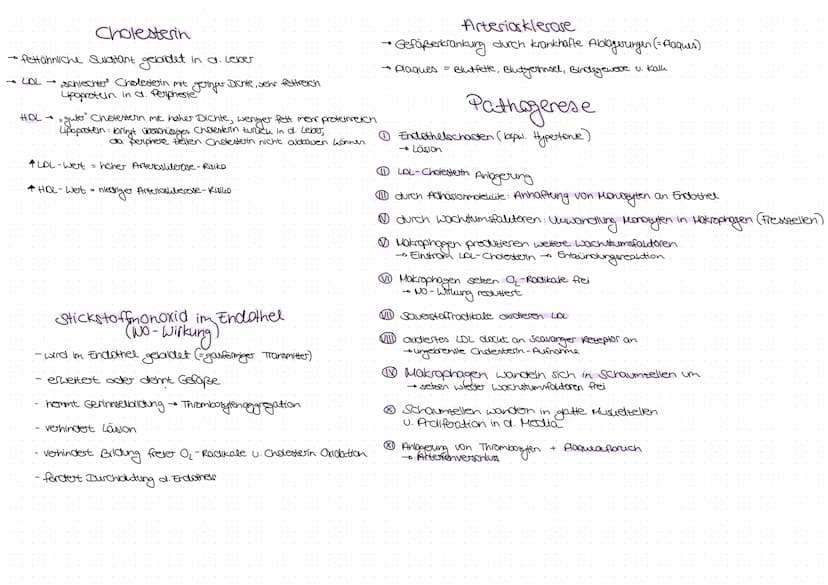 Cholesterin
→ fettähnliche Substanz gebildet in d. Leber
→ LDL → „schlechtes" Cholesterin mit geringer Dichte, sehr fettreich
Lipoprotein in d. Peripherie
HDL → „gutes" Cholesterin mit hoher Dichte, weniger fett mehr proteinreich
Lipoprotein: bringt überschüssiges Cholesterin zurück in d. Leber,
da periphere Zellen Cholesterin nicht abbauen können
↑ LDL-Wert = hoher Arteriosklerose-Risiko
↑ HDL-Wert = niedriger Arteriosklerose-Risiko
Stickstoffmonoxid im Endothel
(NO-Wirkung)
- wird im Endothel gebildet (= gasförmiger Transmitter)
- erweitert oder dehnt Gefäße
- hemmt Gerinnselbildung → Thrombozytenaggregation
- verhindert Läsion
- verhindert Bildung freier O₂-Radikale u. Cholesterin Oxidation
- fördert Durchblutung d. Endothels
Arteriosklerose
→ Gefäßerkrankung durch krankhafte Ablagerungen (= Plaques)
→ Plaques = Blutfette, Blutgerinnsel, Bindegewebe u. Kalk
Pathogenese
I Endothelschaden (bspw. Hypertonie)
→ Läsion
II LDL-Cholesterin Anlagerung
III durch Adhäsionmoleküle: Anhaftung von Monozyten an Endothel
IV durch Wachstumsfaktoren: Umwandlung Monozyten in Makrophagen (Fresszellen)
V Makrophagen produzieren weitere Wachstumsfaktoren
→ Einstrom LDL-Cholesterin → Entzündungsreaktion
VI Makrophagen setzen O₂-Radikale frei
→ NO-Wirkung reduziert
VII Sauerstoffradikale oxidieren LDL
VIII oxidiertes LDL dockt an Scavanger Rezeptor an
→ ungebremste Cholesterin-Aufnahme
IV Makrophagen wandeln sich in Schaumzellen um
→ setzen wieder Wachstumsfaktoren frei
X Schaumzellen wandern in glatte Muskelzellen
u. Proliferation in d. Media
XI Anlagerung von Thrombozyten + Plaqueaufbruch
→ Arterienverschluss